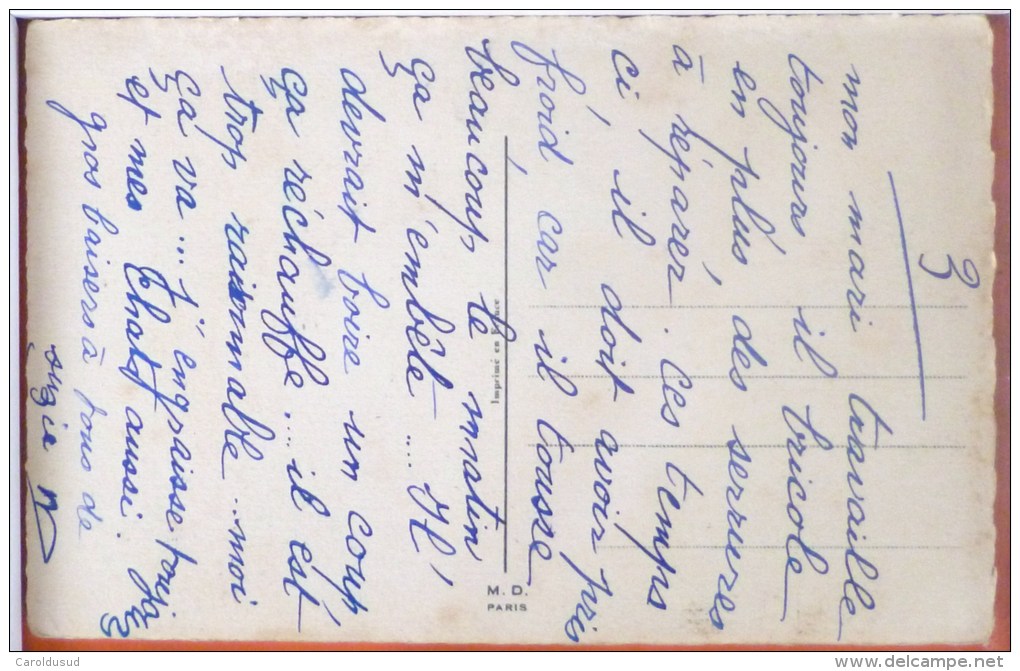 3
mon mari travaille
toujours il bricole
en plus des serrures
à réparer. Ces temps
ci, il doit avoir pris
froid car il tousse
beaucoup le matin
ça m'embête.... Il
devrait boire un coup
ça réchauffe.... il est
trop raisonnable... moi
ça va... j'engraisse
et mes Chats aussi.
gros baisers à tous de
Suzie
Imprimé en France
M. D.
PARIS
Caroldusud
www.delcampe.net